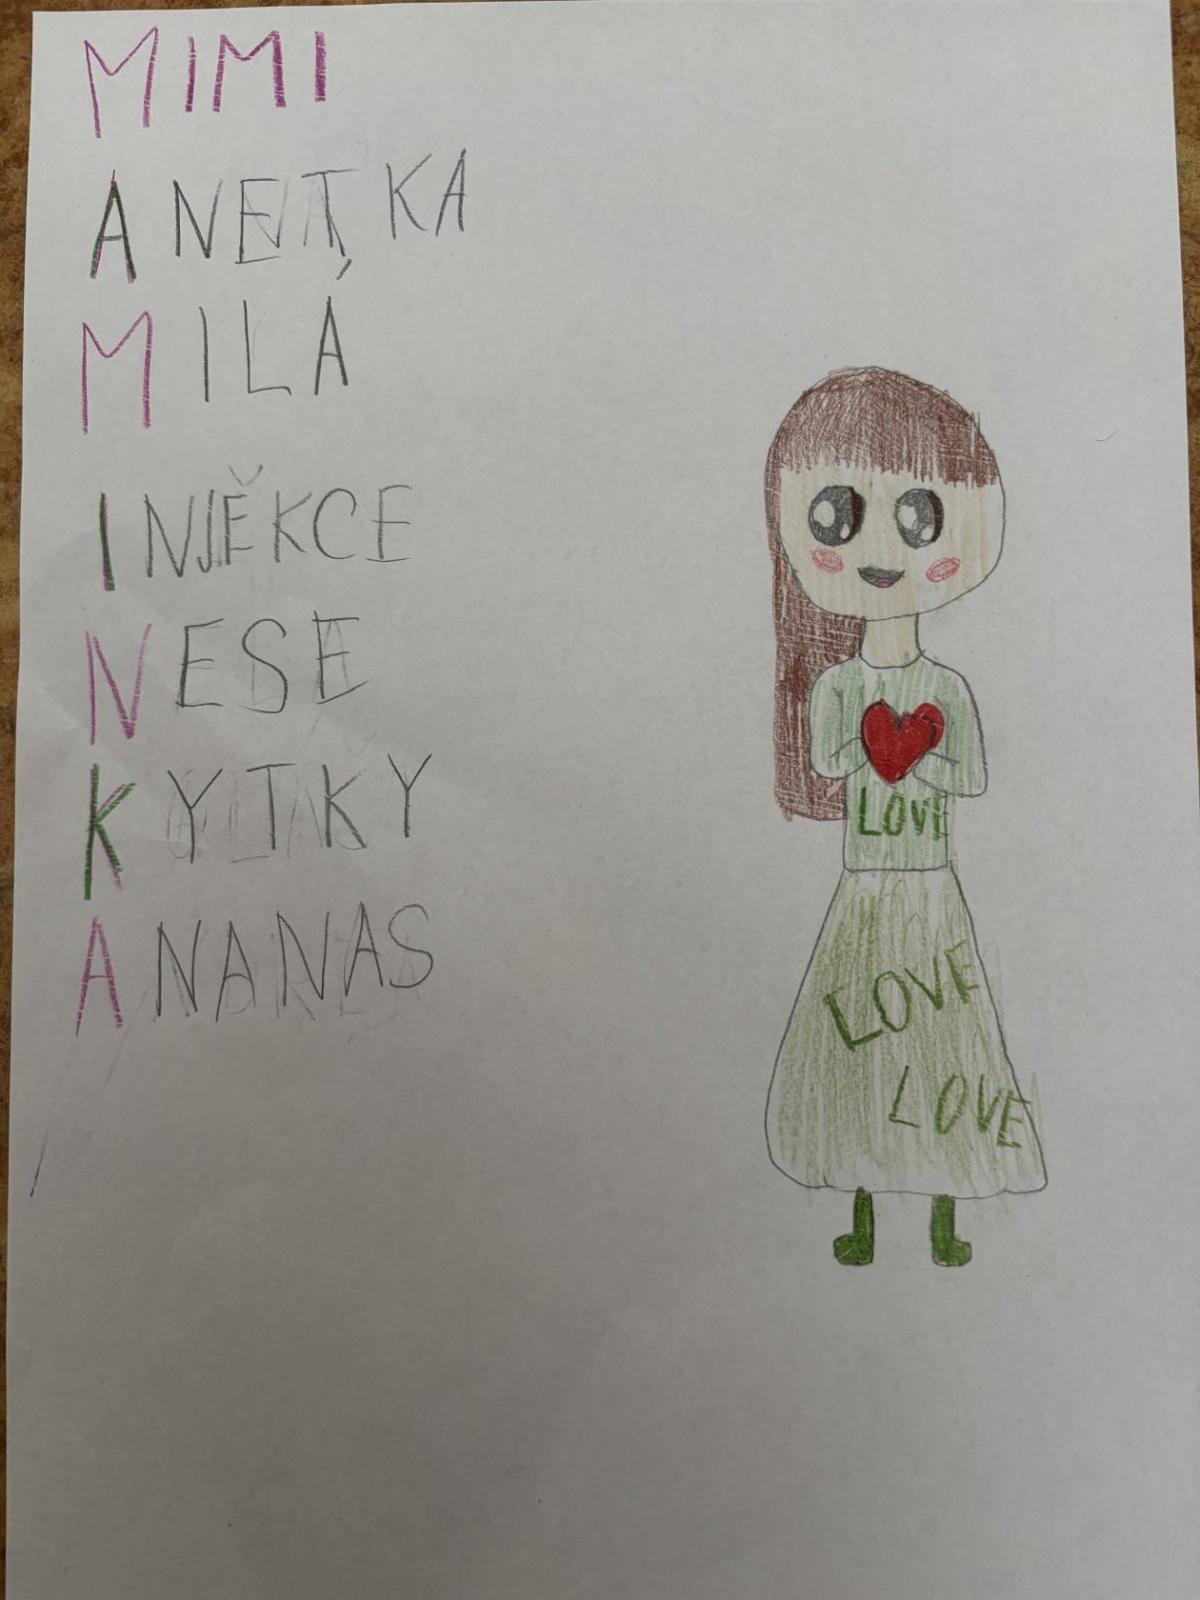 MIMI
ANETKA
MILÁ
INJĚKCE
NESE
KYTKY
ANANAS
LOVE
LOVE
LOVE